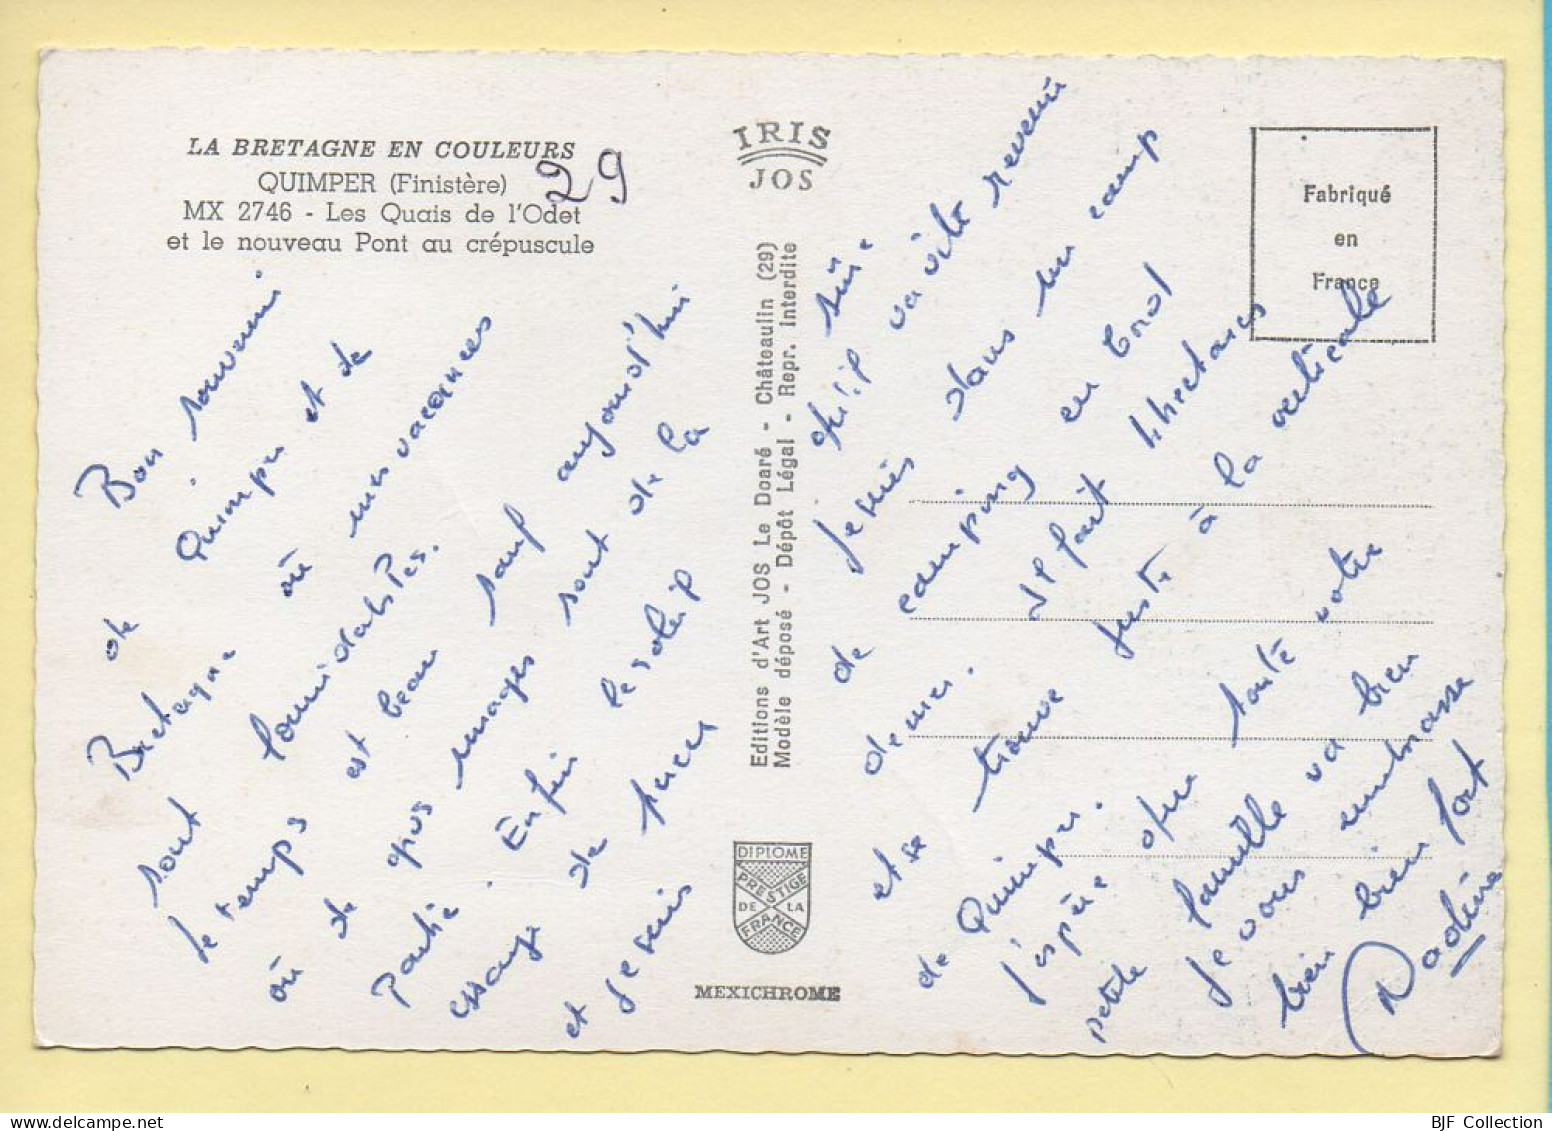 LA BRETAGNE EN COULEURS
QUIMPER (Finistère)
MX 2746 - Les Quais de l'Odet
et le nouveau Pont au crépuscule
29
Bon souvenir
de Quimper et de
Bretagne où mes vacances
sont formidables.
Le temps est beau sauf aujourd'hui
où de gros nuages sont de la
partie. Enfin le soleil
essaye de percer
et je suis sûre
qu'il va vite revenir
Je suis dans un camp
de camping en
dernier. Il fait hectares
et se trouve juste à la verticale
de Quimper.
J'espère que toute votre
petite famille va bien
Je vous embrasse
bien bien fort
Nadine
IRIS
JOS
Editions d'Art JOS Le Doaré - Châteaulin (29)
Modèle déposé - Dépôt Légal - Repr. Interdite
DIPLOME
PRESTIGE
DE LA
FRANCE
MEXICHROME
Fabriqué
en
France
BJF Collection